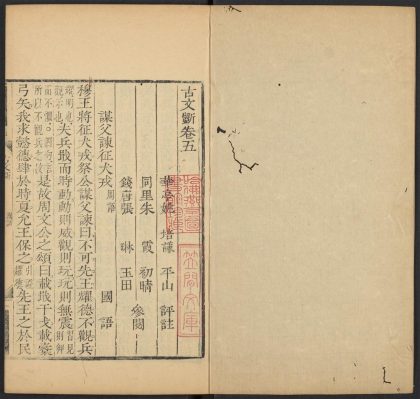 古文斷卷五
華亭姚 培謙 平山 評註
同里朱 霞 初晴
錢唐張 琳 玉田 參閱
謀父諫征犬戎 周語 國語
穆王將征犬戎祭公謀父諫曰不可先王耀德不觀兵
夫兵戢而時動動則威觀則玩玩則無震
是故周文公之頌曰載戢干戈載櫜
弓矢我求懿德肆於時夏允王保之 先王之於民